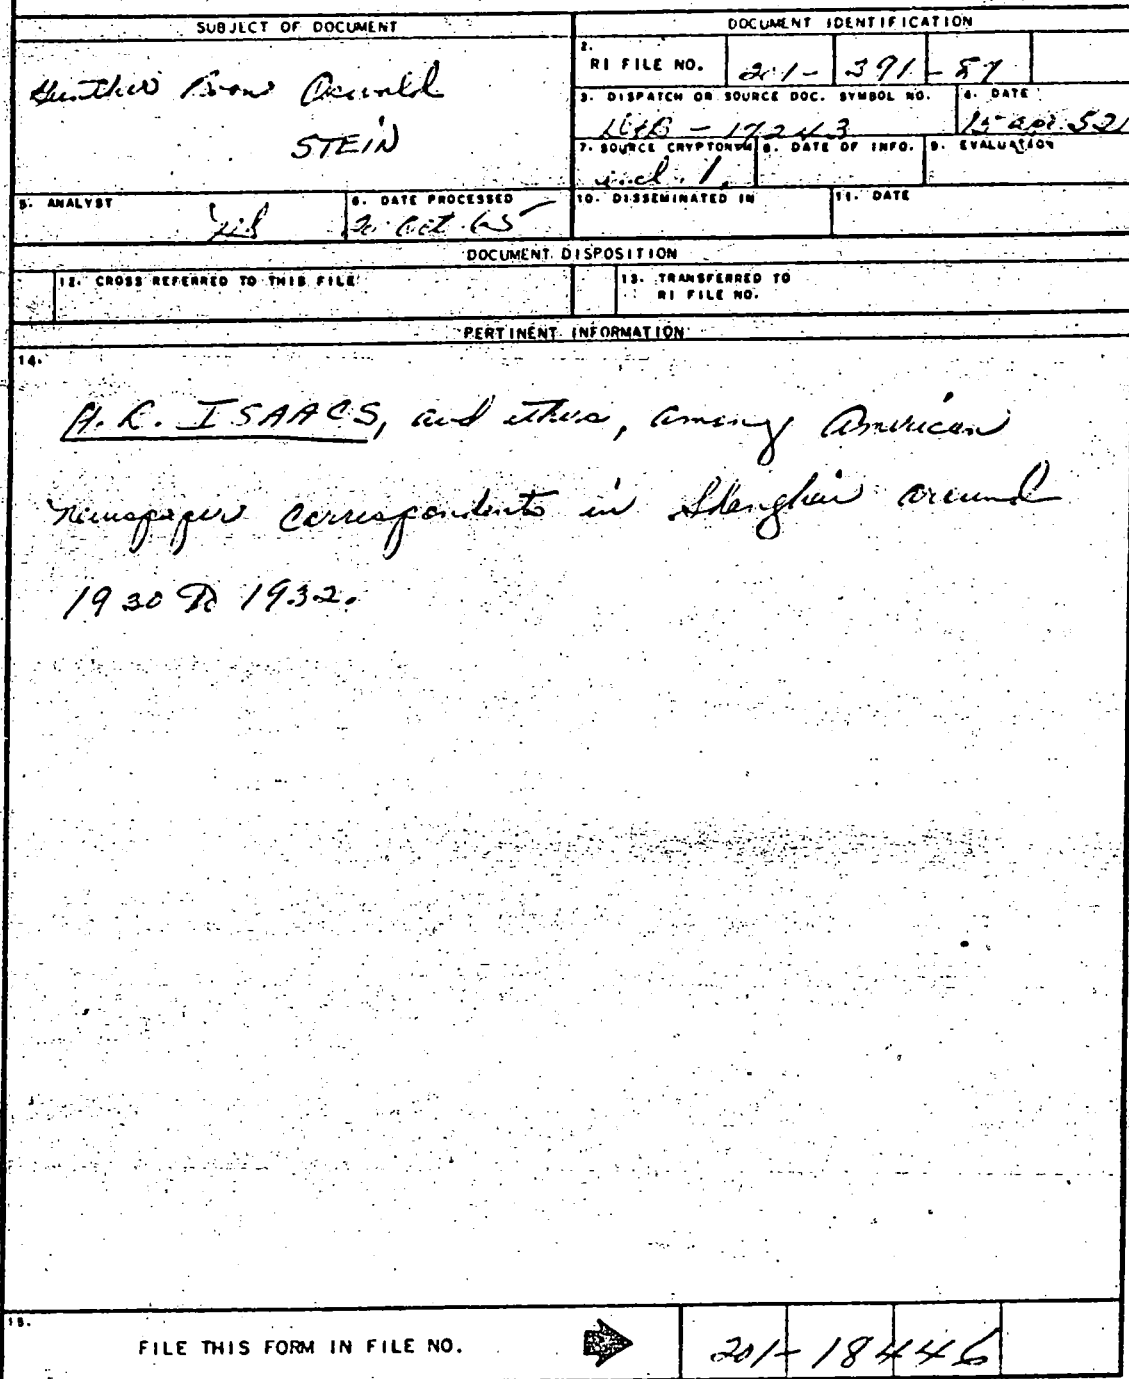 SUBJECT OF DOCUMENT
DOCUMENT IDENTIFICATION
Gunther Oswald
STEIN
2. RI FILE NO. 201- 391 - 87
3. DISPATCH OR SOURCE DOC. SYMBOL NO. 4. DATE
- 17243 15 Apr 52
7. SOURCE CRYPTONYM 8. DATE OF INFO. 9. EVALUATION
incl. 1.
5. ANALYST 6. DATE PROCESSED 10. DISSEMINATED IN 11. DATE
20 Oct 65
DOCUMENT DISPOSITION
12. CROSS REFERRED TO THIS FILE 13. TRANSFERRED TO
RI FILE NO.
PERTINENT INFORMATION
14.
H.R. ISAACS, and others, among American
newspaper correspondents in Shanghai around
1930 to 1932.
15.
FILE THIS FORM IN FILE NO. 201-18446